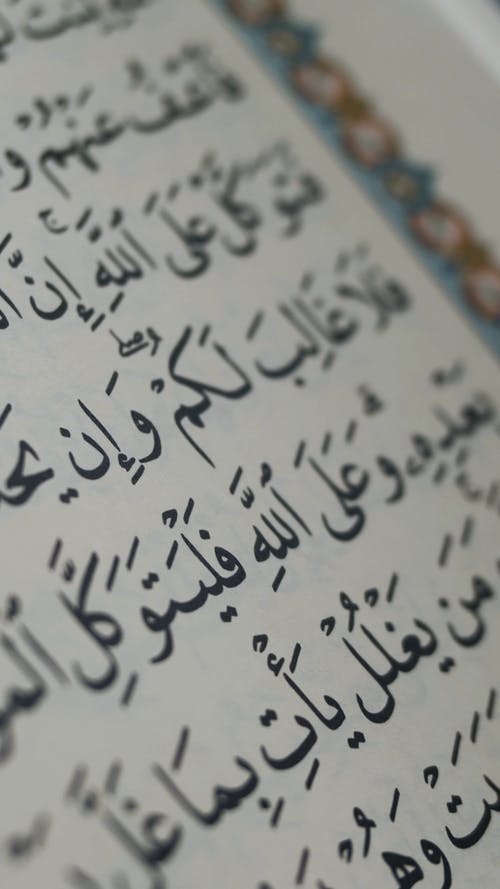 فَٱعۡفُ عَنۡهُمۡ
فَتَوَكَّلۡ عَلَى ٱللَّهِۚ إِنَّ
فَلَا غَالِبَ لَكُمۡۖ وَإِن
بَعۡدِهِۦۗ وَعَلَى ٱللَّهِ فَلۡيَتَوَكَّلِ
وَمَن يَغۡلُلۡ يَأۡتِ بِمَا غَلَّ
وَهُمۡ